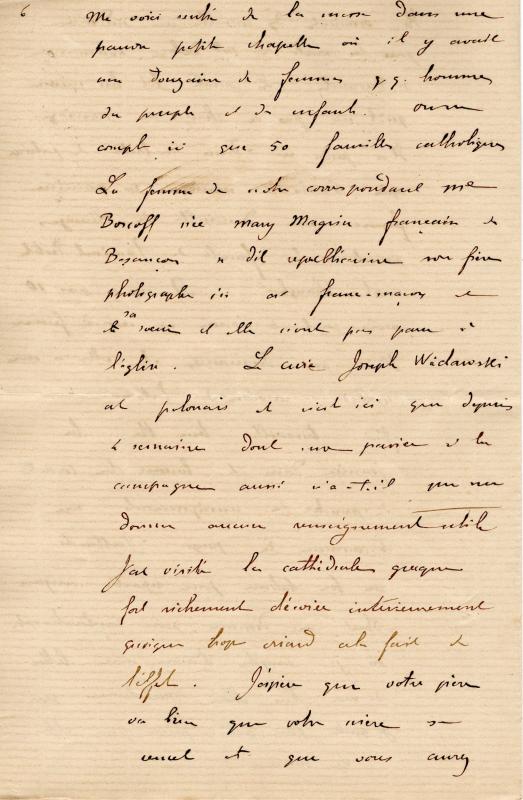 6
Me voici rentré de la messe dans une
pauvre petite chapelle où il y avait
une douzaine de femmes q.q. hommes
du peuple et des enfants. on ne
compte ici que 50 familles catholiques
La femme de notre correspondant me
Boscoff née mary Magnin française de
Besançon se dit républicaine son frère
photographe ici est franc-maçon et
sa soeur et elle n'ont pas paru à
l'église. Le curé Joseph Wiclawski
est polonais et n'est ici que depuis
semaine dont une passée à la
campagne aussi n'a-t-il pu me
donner aucun renseignement utile
J'ai visité la cathédrale grecque
fort richement décorée intérieurement
quoique trop criard cela fait de
l'effet. J'espère que votre père
va bien que votre mère se
remet et que vous aurez